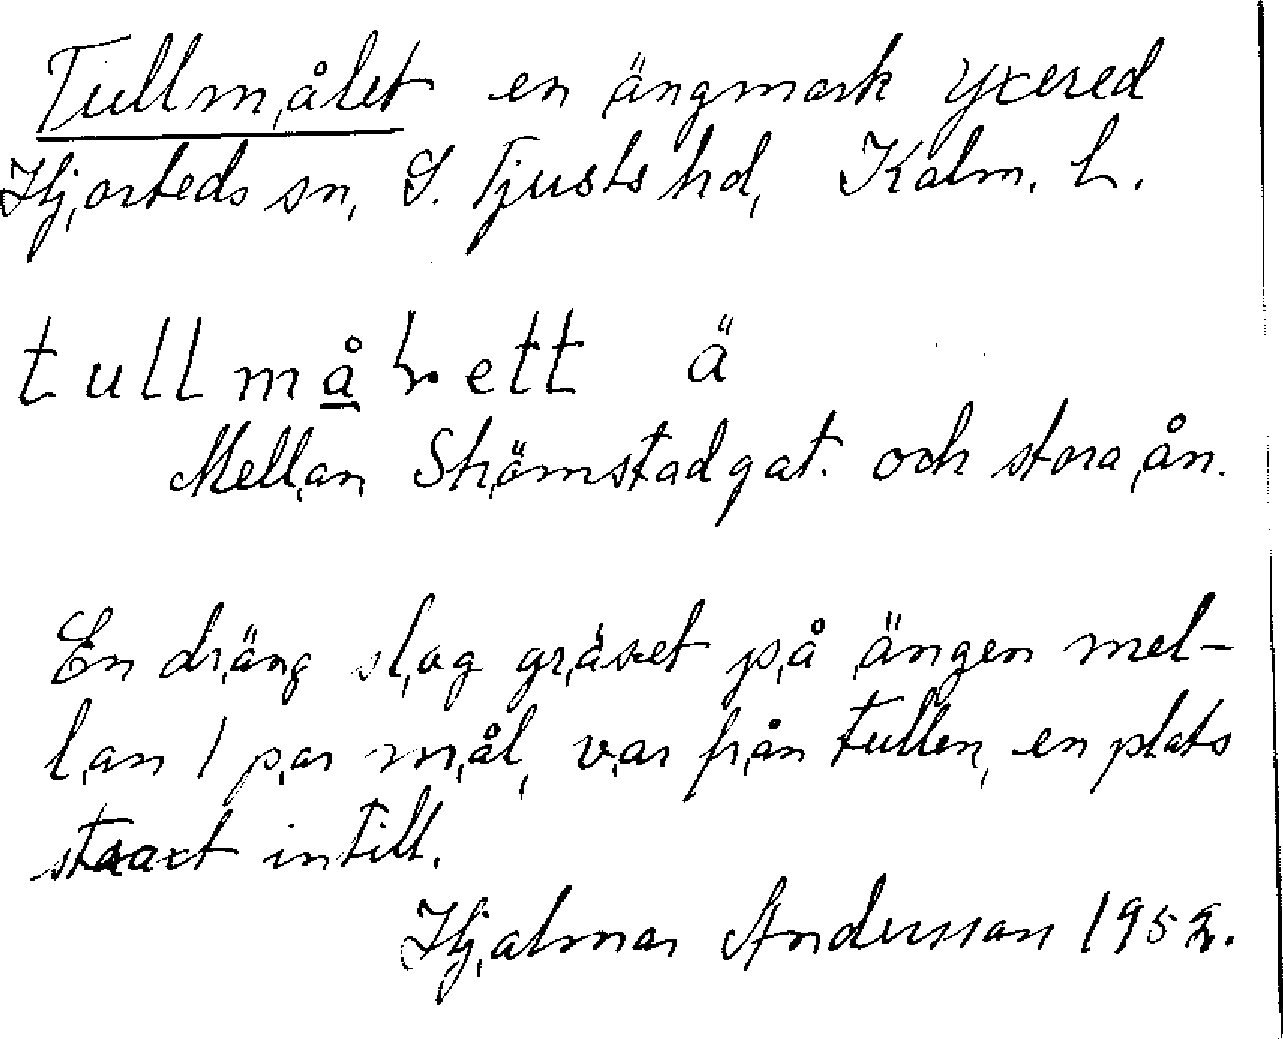 Tullmålet en ängmark Yxered
Hjorteds sn, S. Tjusts hd, Kalm. L.
tullmålett ä
Mellan Strömstadgat. och stora ån.
En dräng slog gräset på ängen mel-
lan 1 par mål, var från tullen, en plats
straxt intill.
Hjalmar Andersson 1952.